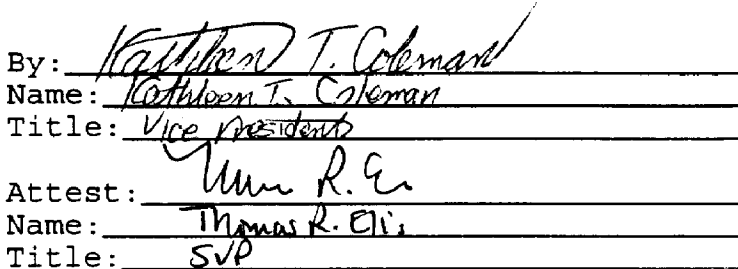 By: Kathleen T. Coleman
Name: Kathleen T. Coleman
Title: Vice President
Attest:
Name: Thomas R. Ellis
Title: SVP